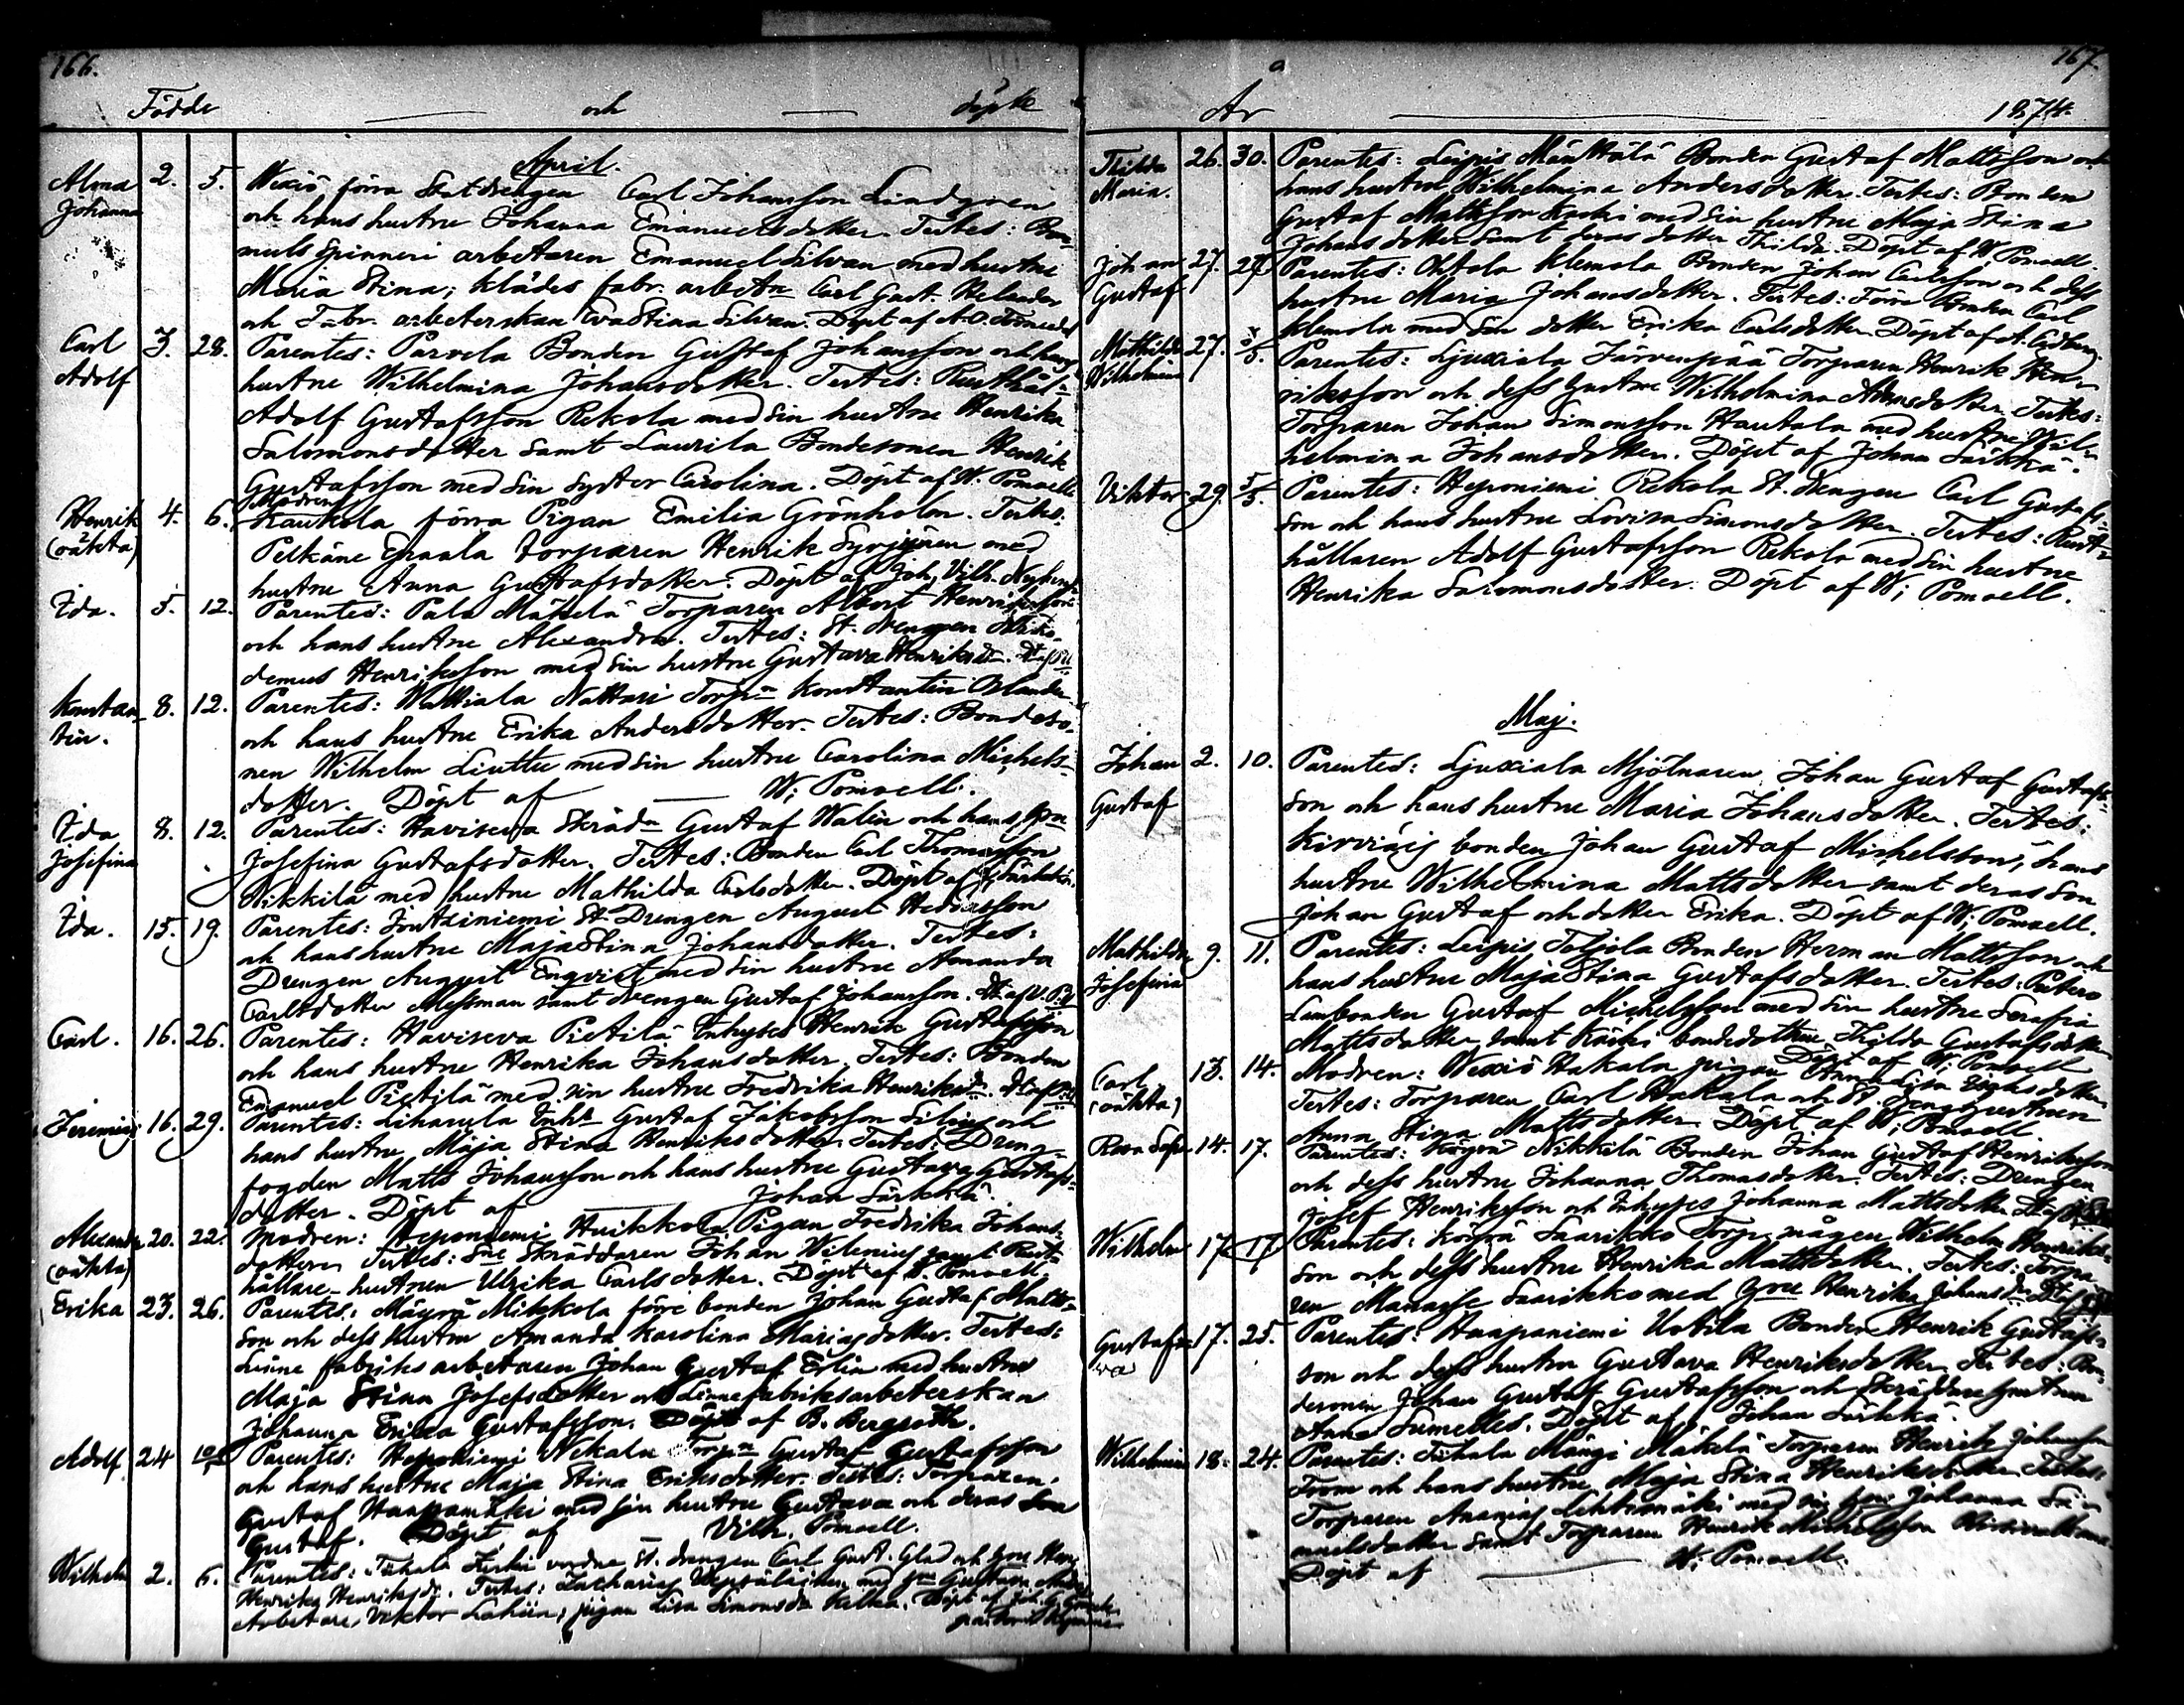 166.
Födde och döpte
April.
Alma Johanna 2. 5. Wexiö förra Statdrengen Carl Johansson Lindgren
och hans hustru Johanna Emanuelsdotter. Testes: Bom-
mulsspinneri arbetaren Emanuel Silvan med hustru
Maria Stina; klädes fabr. arbetn Carl Gust. Helander
och Fabr. arbeterskan Eva Stina Silvan. Döpt af
Carl Adolf 3. 28. Parentes: Parvela Bonden Gustaf Johansson och hans
hustru Wilhelmina Johansdotter. Testes: Rusthål-
Adolf Gustafsson Rekola med sin hustru Henrika
Salomonsdotter samt Laurila Bondesonen Henrik
Gustafsson med sin syster Carolina. Döpt af W. Pomoell
Henrik (oäkta) 4. 6. Modren Kaukola förra Pigan Emilia Grönholm. Testes:
Pelkäne Epaala torparen Henrik Syrjänen med
hustru Anna Gustafsdotter. Döpt af Joh. Vilh.
Ida. 5. 12. Parentes: Palo Mäkelä Torparen Albert Henriksson
och hans hustru Alexandra. Testes: St. drengen Niko-
demus Henriksson med sin hustru Gustava Henriksdr.
Konstan-
tin. 8. 12. Parentes: Wattiala Nattari Torpn Konstantin Oslander
och hans hustru Erika Andersdotter. Testes: Bondeso-
nen Wilhelm Liuttu med sin hustru Carolina Michels-
dotter. Döpt af W: Pomoell.
Ida Josefina 8. 12. Parentes: Havisewa Skrädn Gustaf Walin och hans
Josefina Gustafsdotter. Testes: Bonden Carl Thomasson
Nikkilä med hustru Mathilda Carlsdotter. Döpt af
Ida. 15. 19. Parentes: Jontziniemi St. Drengen August
och hans hustru Maja Stina Johansdotter. Testes:
Drengen August Engvist med sin hustru Amanda
Carlsdotter Messman samt drengen Gustaf Johansson.
Carl. 16. 26. Parentes: Haviseva Pietilä Inhyses Henrik Gustafsson
och hans hustru Henrika Johansdotter. Testes: Bonden
Emanuel Pietilä med sin hustru Fredrika Henriksdr.
Jeremias 16. 29. Parentes: Liharula Inhs Gustaf Jakobsson Silin och
hans hustru Maja Stina Henriksdotter. Testes: Dreng-
fogden Matts Johansson och hans hustru Gustava Gustafs-
dotter. Döpt af Johan Särkkä.
(oäkta) 20. 22. Modren: Heponiemi Huikkola Pigan Fredrika Johans-
dotter. Testes: Skräddaren Johan Wilenius samt Rust-
hållare-hustrun Ulrika Carlsdotter. Döpt af W. Pomoell.
Erika 23. 26. Parentes: Mäyrä Mikkola förre bonden Johan Gustaf Matts-
son och dess hustru Amanda Karolina Mariasdotter. Testes:
linne fabriks arbetaren Johan Gustaf Erlin med hustru
Maja Stina Josefsdotter och Linnefabriksarbeterskan
Johanna Erika Gustafsson. Döpt af B. Bergroth.
Adolf 24 Parentes: Heponiemi Nekala Torpn Gustaf Gustafsson
och hans hustru Maja Stina Eriksdotter. Testes: Torparen
Gustaf Haapamäki med sin hustru Gustava och deras Son
Gustaf. Döpt af Vilh. Pomoell.
Wilhelm 2. 6. Parentes: Tiihala St. drengen Carl Gust. Glad och
Henrika Henriksdr. Testes: Zacharias
Arbetare Viktor pigan Lisa Simonsdr
167.
År 1874.
Thilda Maria. 26. 30. Parentes: Leipis Mänttälä Bonden Gustaf Mattsson och
hans hustru Wilhelmina Andersdotter. Testes: Bonden
Gustaf Mattsson med sin hustru Maja Stina
Johansdotter samt deras dotter Thilda. Döpt af W Pomoell.
Johan Gustaf 27. 27 Parentes: Ohtola Klemola Bonden Johan Carlsson och dess
hustru Maria Johansdotter. Testes: Förre Bonden Carl
Klemola med sin dotter Erika Carlsdotter. Döpt af
Mathilda Wilhelmina 27. Parentes: Ljuxiala Järvenpää Torparen Henrik Hen-
riksson och dess hustru Wilhelmina Adamsdotter. Testes:
Torparen Johan Simonsson Hautala med hustru Wil-
helmina Johansdotter. Döpt af Johan Särkkä.
Viktor 29. 5/5. Parentes: Heponiemi Rekola St. drengen Carl Gustafs-
son och hans hustru Lovisa Simonsdotter. Testes: Rust-
hållaren Adolf Gustafsson Rekola med sin hustru
Henrika Salomonsdotter. Döpt af W; Pomoell.
Maj.
Johan Gustaf 2. 10. Parentes: Ljuxiala Mjölnaren Johan Gustaf Gustafs-
son och hans hustru Maria Johansdotter. Testes:
bonden Johan Gustaf Michelsson, hans
hustru Wilhelmina Mattsdotter samt deras Son
Johan Gustaf och dotter Erika. Döpt af W; Pomoell.
Mathilda Josefina 9. 11. Parentes: Leipis Toljola Bonden Herman Mattsson och
hans hustru Maja Stina Gustafsdotter. Testes:
bonden Gustaf Michelsson med sin hustru Serafia
Mattsdotter samt bondedottren Thilda Gustafsdotter
Döpt af W; Pomoell
Carl (oäkta) 13. 14. Modren: Wexiö Hakala pigan Anna Lisa
Testes: Torparen Carl Hakala och
Anna Stina Mattsdotter. Döpt af W; Pomoell.
Rosa 14. 17. Parentes: Köyrä Nikkilä Bonden Johan Gustaf Henriksson
och dess hustru Johanna Thomasdotter. Testes: Drengen
Josef Henriksson och Inhyses Johanna Mattsdotter
Wilhelm 17. 17 Parentes: Köyrä Saarikko Torp. mågen Wilhelm Henriks-
son och dess hustru Henrika Mattsdotter. Testes: Torpa-
ren Manasse Saarikko med Henrika Johansdr
Gusta
va 17. 25. Parentes: Haapaniemi Uotila Bonden Henrik Gustafs-
son och dess hustru Gustava Henriksdotter. Testes: Bon-
desonen Johan Gustaf Gustafsson och
Anna Sumelles. Döpt af Johan Särkkä.
18. 24. Parentes: Tiihala Mängi Mäkelä Torparen Henrik Johansson
From och hans hustru Maja Stina Henriksdotter. Testes:
Torparen Ananias Lehtimäki med sin Johanna Sa-
muelsdotter samt Torparen Henrik Michelsson
Döpt af W; Pomoell.